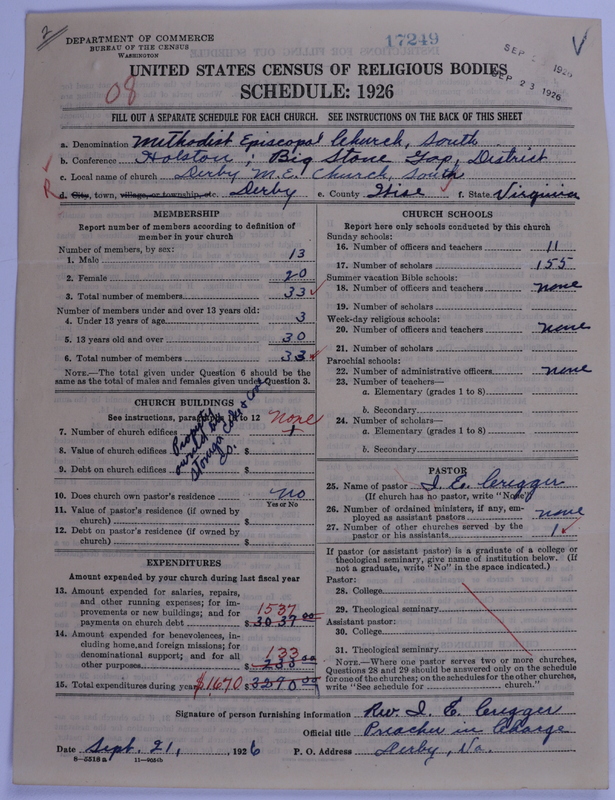 2
DEPARTMENT OF COMMERCE
BUREAU OF THE CENSUS
WASHINGTON
17249
SEP 1926
SEP 23 1926
V
08
UNITED STATES CENSUS OF RELIGIOUS BODIES
SCHEDULE: 1926
FILL OUT A SEPARATE SCHEDULE FOR EACH CHURCH. SEE INSTRUCTIONS ON THE BACK OF THIS SHEET
a. Denomination Methodist Episcopal Church, South
b. Conference Holston; Big Stone Gap, District
c. Local name of church Derby M.E. Church, South
R d. City, town, village, or township, etc. Derby e. County Wise f. State Virginia
MEMBERSHIP
Report number of members according to definition of
member in your church
Number of members, by sex:
1. Male 13
2. Female 20
3. Total number of members 33
Number of members under and over 13 years old:
4. Under 13 years of age 3
5. 13 years old and over 30
6. Total number of members 33
NOTE.—The total given under Question 6 should be the
same as the total of males and females given under Question 3.
CHURCH BUILDINGS
See instructions, paragraphs to 12
7. Number of church edifices none 1
8. Value of church edifices $
9. Debt on church edifices $
Property
owned by
Stonega Coke & Coal
Co.
10. Does church own pastor's residence no
Yes or No
11. Value of pastor's residence (if owned by
church) $
12. Debt on pastor's residence (if owned by
church) $
EXPENDITURES
Amount expended by your church during last fiscal year
13. Amount expended for salaries, repairs,
and other running expenses; for im-
provements or new buildings; and for 1537
payments on church debt $ 3037 00
14. Amount expended for benevolences, in-
cluding home and foreign missions; for
denominational support; and for all 133
other purposes $ 233 00
15. Total expenditures during year $1670 3270 00
CHURCH SCHOOLS
Report here only schools conducted by this church
Sunday schools:
16. Number of officers and teachers 11
17. Number of scholars 155
Summer vacation Bible schools:
18. Number of officers and teachers none
19. Number of scholars
Week-day religious schools:
20. Number of officers and teachers none
21. Number of scholars
Parochial schools:
22. Number of administrative officers none
23. Number of teachers—
a. Elementary (grades 1 to 8)
b. Secondary
24. Number of scholars—
a. Elementary (grades 1 to 8)
b. Secondary
PASTOR
25. Name of pastor I. E. Cregger
(If church has no pastor, write "None")
26. Number of ordained ministers, if any, em-
ployed as assistant pastors none
27. Number of other churches served by the
pastor or his assistants 1
If pastor (or assistant pastor) is a graduate of a college or
theological seminary, give name of institution below. (If
not a graduate, write "No" in the space indicated.)
Pastor:
28. College
29. Theological seminary
Assistant pastor:
30. College
31. Theological seminary
NOTE.—Where one pastor serves two or more churches,
Questions 28 and 29 should be answered only on the schedule
for one of the churches; on the schedules for the other churches,
write "See schedule for church."
Signature of person furnishing information Rev. I. E. Cregger
Official title Preacher in Charge
Date Sept. 21, 1926 P. O. Address Derby, Va.
8—5518a 11—9054b